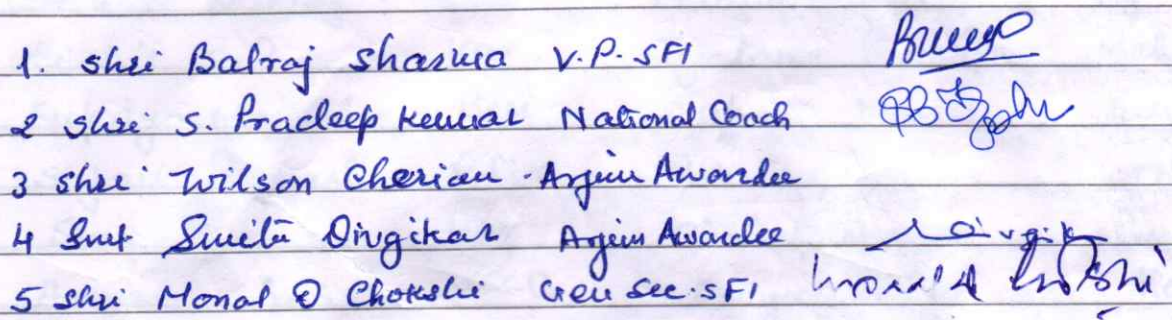 1. Shri Balraj Sharma V.P. SFI
2 Shri S. Pradeep Kumar National Coach
3 Shri Wilson Cherian - Arjun Awardee
4 Smt Smita Divgikar Arjun Awardee
5 Shri Monal D Chokshi Gen Sec. SFI Monal D Chokshi